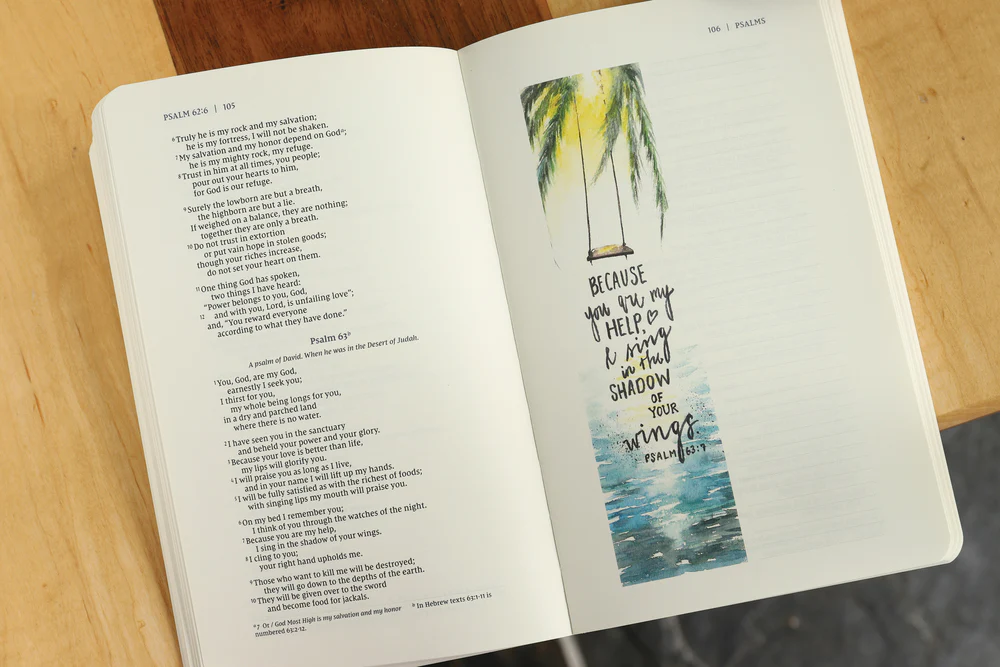 PSALM 62:6 | 105
⁶Truly he is my rock and my salvation;
he is my fortress, I will not be shaken.
⁷My salvation and my honor depend on Godᵃ;
he is my mighty rock, my refuge.
⁸Trust in him at all times, you people;
pour out your hearts to him,
for God is our refuge.
⁹Surely the lowborn are but a breath,
the highborn are but a lie.
If weighed on a balance, they are nothing;
together they are only a breath.
¹⁰Do not trust in extortion
or put vain hope in stolen goods;
though your riches increase,
do not set your heart on them.
¹¹One thing God has spoken,
two things I have heard:
“Power belongs to you, God,
¹² and with you, Lord, is unfailing love”;
and, “You reward everyone
according to what they have done.”
Psalm 63ᵇ
A psalm of David. When he was in the Desert of Judah.
¹You, God, are my God,
earnestly I seek you;
I thirst for you,
my whole being longs for you,
in a dry and parched land
where there is no water.
²I have seen you in the sanctuary
and beheld your power and your glory.
³Because your love is better than life,
my lips will glorify you.
⁴I will praise you as long as I live,
and in your name I will lift up my hands.
⁵I will be fully satisfied as with the richest of foods;
with singing lips my mouth will praise you.
⁶On my bed I remember you;
I think of you through the watches of the night.
⁷Because you are my help,
I sing in the shadow of your wings.
⁸I cling to you;
your right hand upholds me.
⁹Those who want to kill me will be destroyed;
they will go down to the depths of the earth.
¹⁰They will be given over to the sword
and become food for jackals.
ᵃ7 Or / God Most High is my salvation and my honor ᵇ In Hebrew texts 63:1-11 is
numbered 63:2-12.
106 | PSALMS
BECAUSE
you are my
HELP, ♡
& sing
in the
SHADOW
OF
YOUR
wings.
PSALM 63:7